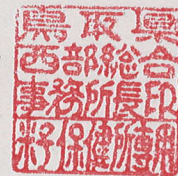 鳥取県
西部総合
事務所長印
米子保健所専用